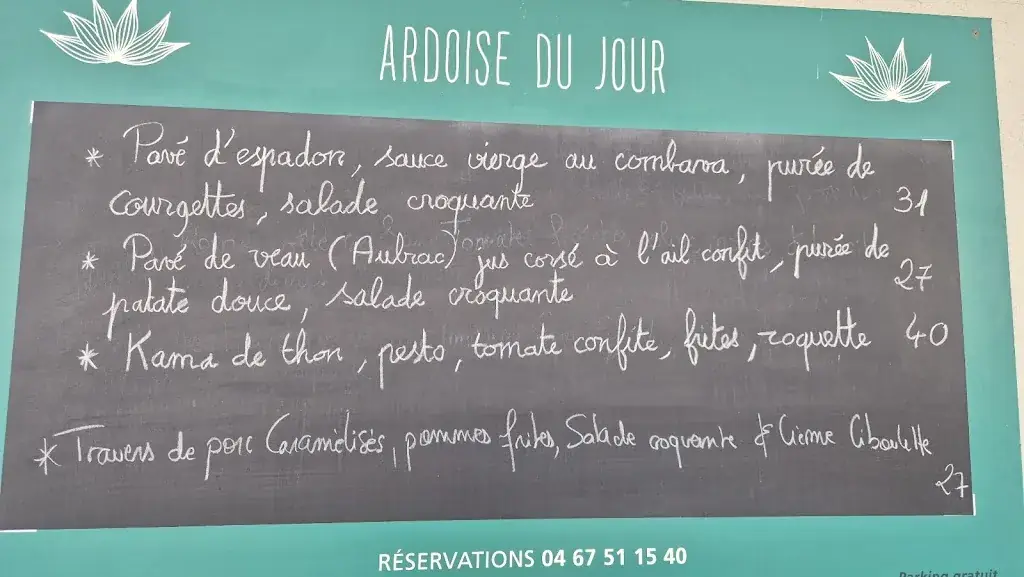 ARDOISE DU JOUR
* Pavé d'espadon, sauce vierge au combava, purée de
courgettes, salade croquante 31
* Pavé de veau (Aubrac) jus corsé à l'ail confit, purée de
patate douce, salade croquante 27
* Kama de thon, pesto, tomate confite, frites, roquette 40
* Travers de porc Caramélisés, pommes frites, Salade croquante & Crème Ciboulette
27
RÉSERVATIONS 04 67 51 15 40
Parking gratuit